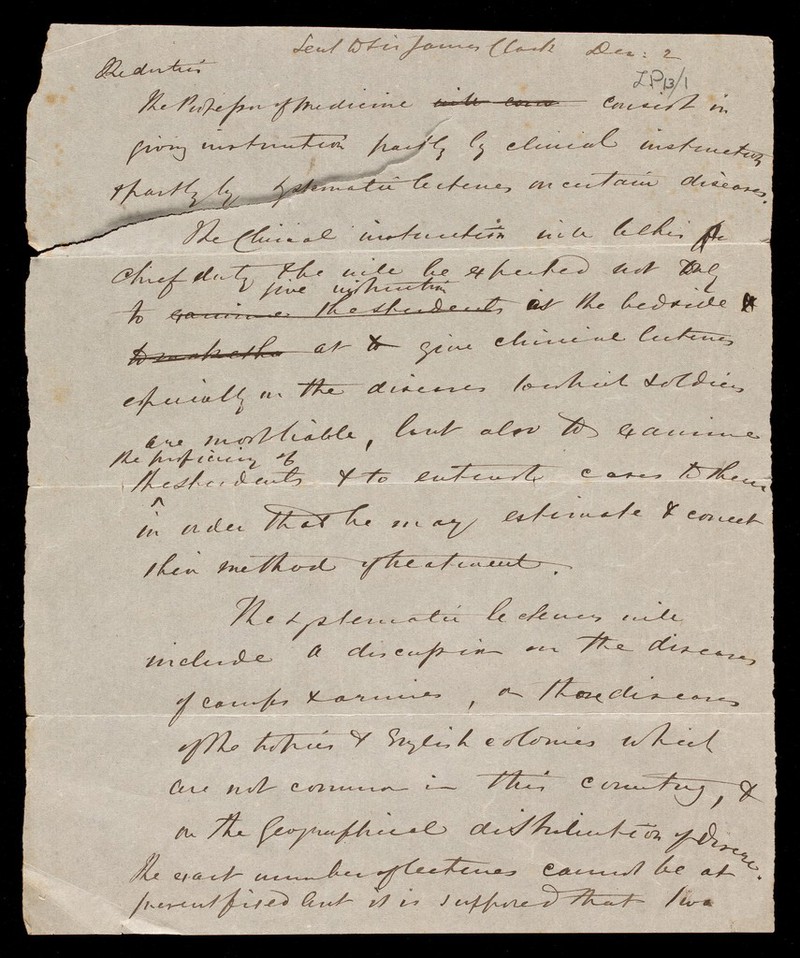 Sent to Sir James Clark Dec: 2
LP13/1
The duties
the Professor of Medicine will cons consist in
giving instruction partly by clinical instruction
& partly by systematic lectures on certain diseases.
The Clinical instruction will be his
chief duty & he will be expected not only
give instruction
to examine the students at the bedside &
to make the at to give clinical lectures
especially on the diseases to which soldiers
are most liable, but also to examine
the proficiency of
the students & to entrust cases to them
in order that he may estimate & correct
their method of treatment.
The systematic lectures will
include a discussion on the diseases
of camps & armies, on those diseases
of the tropics & English colonies which
are not common in this country, &
on the Geographical distribution of disease.
The exact number of lectures cannot be at
present fixed but it is supposed that two